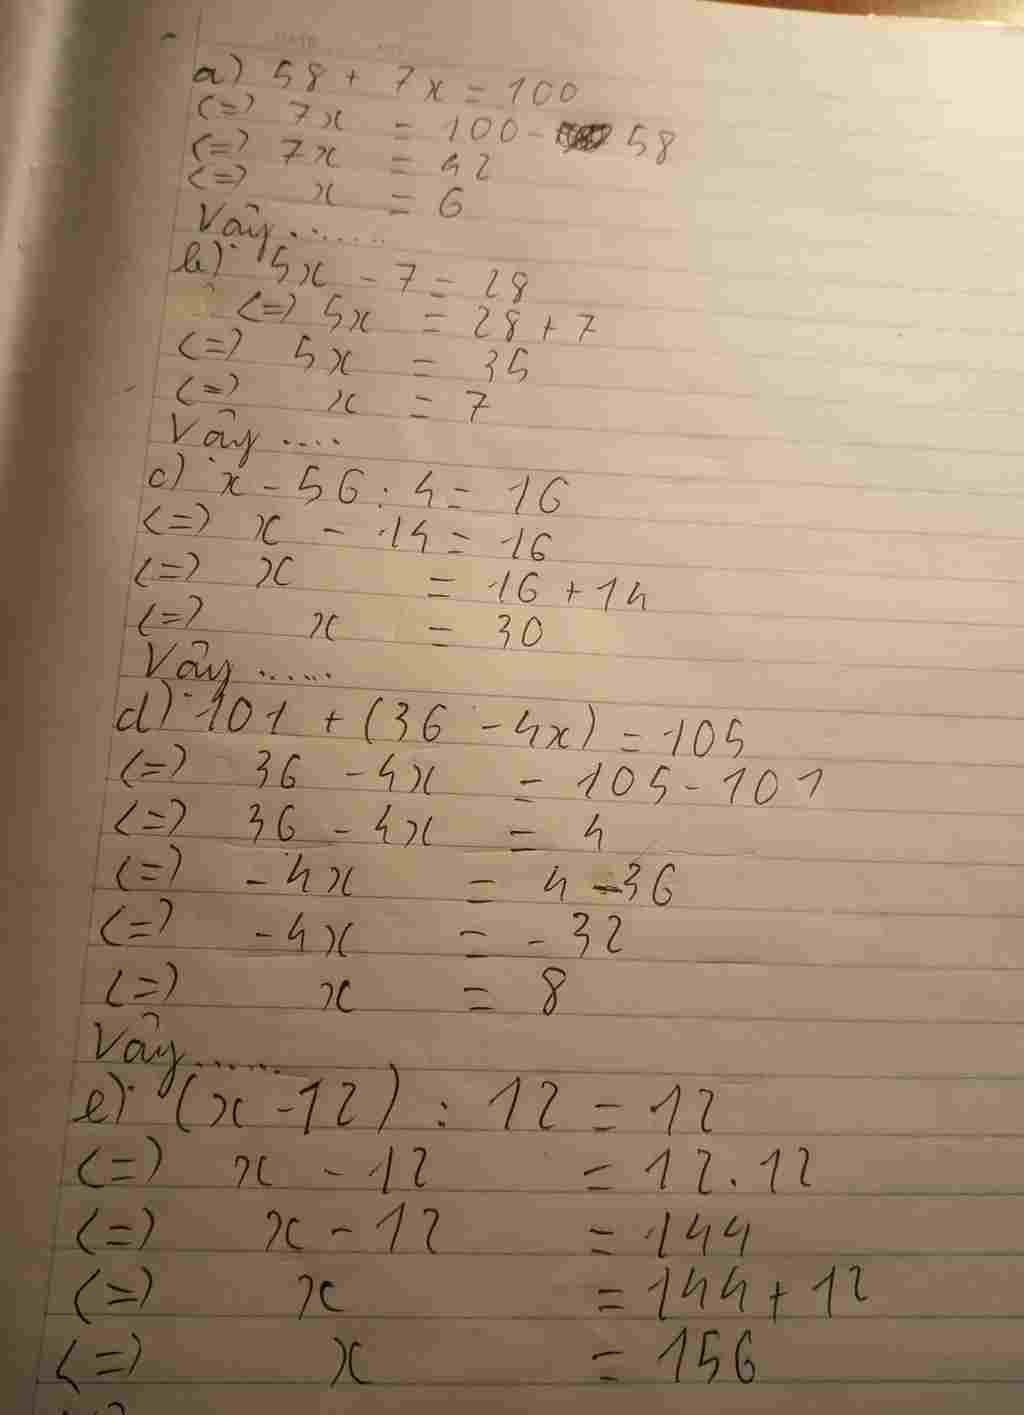 a) 58 + 7x = 100
<=> 7x = 100 - 58
<=> 7x = 42
<=> x = 6
Vậy.......
b) 5x - 7 = 28
<=> 5x = 28 + 7
<=> 5x = 35
<=> x = 7
Vậy ....
c) x - 56 : 4 = 16
<=> x - 14 = 16
<=> x = 16 + 14
<=> x = 30
Vậy ......
d) 101 + (36 - 4x) = 105
<=> 36 - 4x = 105 - 101
<=> 36 - 4x = 4
<=> - 4x = 4 - 36
<=> - 4x = - 32
<=> x = 8
Vậy......
e) (x - 12) : 12 = 12
<=> x - 12 = 12 . 12
<=> x - 12 = 144
<=> x = 144 + 12
<=> x = 156